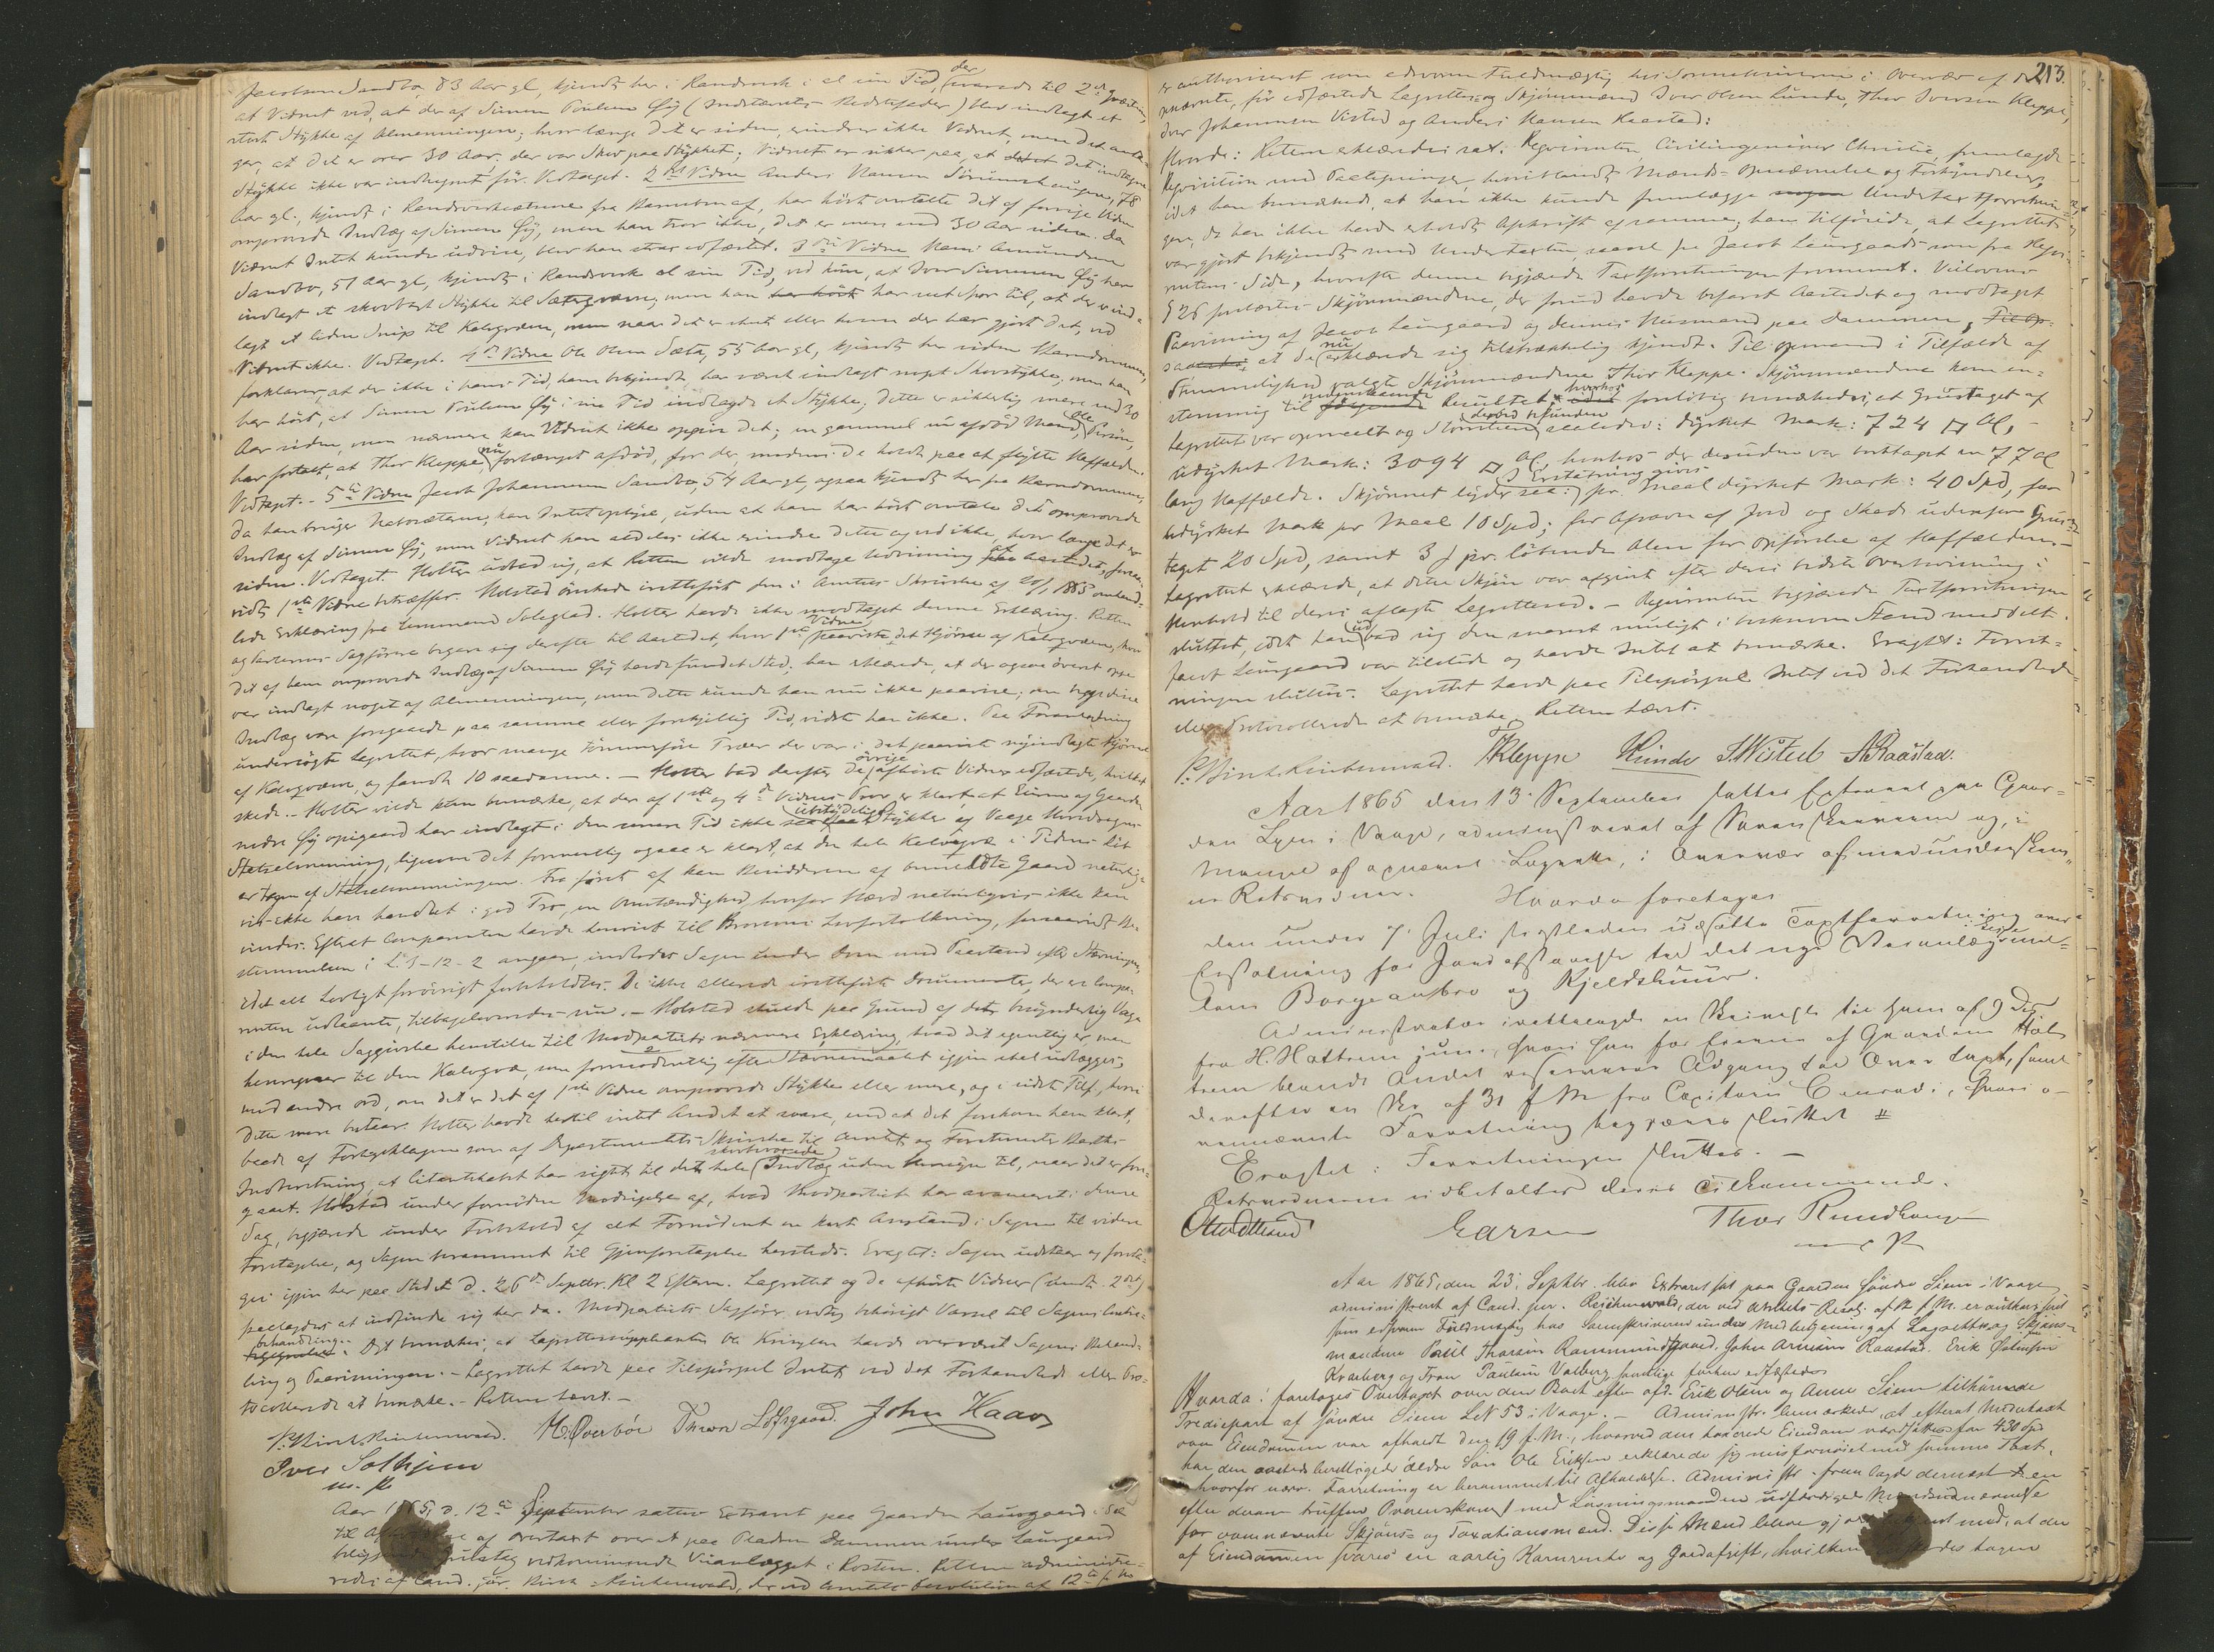 Jacobsen Sandbo, 83 Aar gl, kjendt her i Randsverk i al sin Tid, der svarede til 2det
at Vidnet ved, at der af Simen Poulsen Øy (Indstævnte Redstefader) blev indlagt et
stort Stykke af Almenningen; hvor længe det er siden, erindrer ikke Vidnet, men det anta-
ger, at det er over 30 Aar. der var Skov paa Stykket; Vidnet er sikker paa, at det indtagne
Stykke ikke var indhegnet før. Vedtaget. 2det Vidne Anders Hansen Strømshaugen, 78
Aar gl., kjendt i Randsverksætrene fra Barnsben af, har hørt omtale det af forrige Vidne
omprovede Indlæg af Simen Øy, men han tror ikke, det er mere end 30 Aar siden. Da
Vidnet Intet kunde udvise, blev han strax edfæstet. 3die Vidne Hans Amundsen
Sandbo, 51 Aar gl, kjendt i Randsverk al sin Tid, ved kun, at Iver Simensen Øy har
indlagt et skovbart Stykke til Sætergræsm, men han har hørt har set Spor til, at der er ind-
lagt et liden Snip til Kalvgræen, men naar det er skeet eller hvem der har gjort det, ved
Vidnet ikke. Vedtaget. 4de Vidne Ole Olsen Sæta, 55 Aar gl, kjendt her siden Barndommen,
forklarer, at der ikke i hans Tid, ham bekjendt, har været indlagt noget Skovstykke, men han
har hørt, at Simen Poulsen Øy i sin Tid indlagde et Stykke; dette er sikkerlig mere end 30
Aar siden, men nærmere kan Vidnet ikke opgive det; en gammel nu afdød Mand, Ole Persøn,
har fortalt, at Thor Kleppe nu forlænget afdød, for der, medens de holdt paa at flytte Haffælden.
Vedtaget. - 5te Vidne Jacob Johannesen Sandbo, 54 Aar gl, ogsaa kjendt her fra Barndommen,
da han bruger Nabosæteren, kan Intet oplyse, uden at han har hørt omtale det omprovede
Indlæg af Simen Øy, men Vidnet kan aldeles ikke erindre dette og ved ikke, hvor længe det er
siden. Vedtaget. Motter udbad sig, at Retten vilde modtage Udvisning paa Aastedet, forsaa-
vidt 1ste Vidne betræffer. Holstad ønskede indtført den i Amtets Skrivelse af 20/1 1865 omhand-
lede Erklæring fra Lensmand Soleglad. Motter havde ikke modtaget denne Erklæring. Retten
og Parternes Sagførere begave sig derefter til Aastedet, hvor 1ste Vidne paaviste det Hjørne af Kalvgræen, hvor
det af ham omprovede Indlæg af Simen Øy havde fundet Sted; han erklærede, at der ogsaa øverst oppe
var indlagt noget af Almenningen, men dette kunde han nu ikke paavise; om begge disse
Indlæg vare foregaaede paa samme eller forskjellig Tid, vidste han ikke. Paa Foranledning
undersøgte Lagrettet, hvor mange tømmerføre Træer der var i det paaviste nyindlagte Hjørne
af Kalvgræen, og fandt 10 saadanne. — Motter bad derefter de øvrige afhørte Vidner edfæstede, hvilket
skede. - Motter vilde kun bemærke, at der af 1ste og 4de Vidnes Prov er klart, at Eierne af Gaarden
nedre Øy opigaard har indlagt i den senere Tid ikke saa faa ubetydelige Stykker af Vaage Hovedsogns
Statsalmenning, ligesom det formentlig ogsaa er klart, at den hele Kalvgræ i Tidens Løb
er tagen af Statsalmenningen. Fra først af kan Besidderen af bemeldte Gaard naturlig-
vis ikke have handlet i god Tro, en Omstændighed, hvorfor Hævd naturligvis ikke kan
vindes. Efterat Comparenten havde henvist til Brorsons Lovfortolkning, forsaavidt Be-
stemmelsen i L. 3-12-2 angaar, indlodes Sagen under Dom med Paastand efter Stævningen,
idet alt Lovligt forøvrigt forbeholdtes. De ikke allerede irettelagte Documenter, der er Compa-
renten udlaante, tilbageleveredes nu. — Holstad skulde paa Grund af dets begyndelig Vage
i den hele Saggivelse henstille til Modpartiets nærmere Erklæring, hvad det egentlig er, man
henregner til den Kalvgræ, som formodentlig efter Stævnemaalet igjen skal udlægges,
med andre ord, om det er det af 1ste Vidne omprovede Stykke eller mere, og i sidste Tilf. hvori
dette mere bestaar. Motter havde hertil intet Andet at svare, end at det forekom ham klart,
baade af Forligsklagen som af Departementets Skrivelse til Amtet og Forstmester Barths
Indberetning, at Citantskabet har sigtet til det hele stedfundne Indlæg uden Hensyn til, naar det er fore-
gaaet. Holstad under fornøden Modsigelse af, hvad Modpartiet har avanceret i denne
Sag, begjærede under Forbehold af alt Fornødent en kort Anstand i Sagen til videre
Foretagelse, og Sagen berammet til Gjenforetagelse hersteds. Eragtet: Sagen udstaar og foreta-
ges igjen her paa Stedet d. 26de Septbr. Kl 2 Efterm. Lagrettet og de afhørte Vidner (undt. 2det)
paalagdes at indfinde sig her da. Modpartiets Sagfører vedtog behørigt Varsel til Sagens
behandling. Det bemærkes, at Lagrettessuppleanten Ole Kringlen havde overværet Sagens Behand-
ling og Paavisningen. - Lagrettet havde paa Tilspørgsel Intet ved det Forhandlede eller Pro-
tocollerede at bemærke. - Retten hævet. -
P. Kink Reichenwald. H. Øverbøe Thron Løftsgaard. John Haave
Iver Solhjem
m. P.
Aar 1865, d. 12te September sattes Extraret paa Gaarden Laurgaard i Sel
til af overtaxt over et paa Pladsen Dammen under Laurgaard
vedkommende Veianlægget i Rosten. Retten administre-
redes af Cand. jur. Kink Reichenwald, der ved Amtets Resolution af 12te f. M.
213.
er authoriseret som edsvoren Fuldmægtig hos Sorenskriveren i Overvær af de
nævnte, før edfæstede Lagrettes og Skjønsmænd Iver Olsen Lunde, Thor Iversen Kleppe,
Iver Johannesen Visted og Anders Hansen Raastad:
Hvorda: Retten erklæredes sat. Reqvirenten, Civilingeniør Christie, fremlagde
Reqvisition med Paategninger, hvoriblandt Mænds-Opnævnelse og Forkyndelse,
idet han bemærkede, at han ikke kunde fremlægge nogen Undertaxtforretnin-
gen, da han ikke havde erholdt Afskrift af samme; han tilføiede, at Lagrettet
var gjort bekjendt med Undertaxten, saavel fra Jacob Laurgaards som fra Reqvi-
rentens Side, hvorefter denne begjærede Taxtforretningen fremmet. Veilovens
§ 26 forelæstes Skjønsmændene, der forud havde befaret Aastedet og modtaget
Paavisning af Jacob Laurgaard og dennes Husmand paa Dammen,
at de nu erklærede sig tilstrækkelig kjendt. Til Opmand i Tilfælde af
Stemmelighed valgte Skjønsmændene Thor Kleppe. Skjønsmændene kom en-
stemmig til nedenstaaende Resultat, hvorhos foreløbig bemærkedes, at Grustaget af
Lagrettet var opmaalt og Størrelsen derved befunden saaledes: dyrket Mark: 724 □ Al,
udyrket Mark: 3094 □ Al, hvorhos der desuden var borttaget en 77 Al
lang Haffælde. Skjønnet lyder saa: I Erstatning gives pr. Maal dyrket Mark: 40 Spd, for
udyrket Mark pr Maal 10 Spd; for Afsavn af Jord og Skade udenfor Grus-
taget 20 Spd, samt 3 ʃ pr. løbende Alen for Opførelse af Haffælden.
Lagrettet erklærede, at dette Skjøn var afgivet efter deres bedste Overbevisning i
Henhold til deres aflagte Lagretteed. - Reqvirenten begjærede Taxtforretningen
sluttet, idet han udbad sig den snarest muligt i beskreven Stand meddelt.
Jacob Laurgaard var tilstede og havde Intet at bemærke. Eragtet: Forret-
ningen sluttes. Lagrettet havde paa Tilspørgsel Intet ved det Forhandlede
eller Protocollerede at bemærke. Retten hævet.
P. Kink Reichenwald. TKleppe ILunde IWisted ARaastad.
Aar 1865 den 13 September sattes Extraret paa Gaar-
den Lyen i Vaage, administreret af Sorenskriveren og, i
Mangel af opnævnt Lagrette, i Overvær af medunderskrev-
ne Retsvidner. Hvorda foretages
den under 7. Juli sidstleden udsatte Taxtforretning over
Erstatning for Jordafstaaelse til det nye Veianlægs Linie mel-
lem Borgeansbro og Kjeldshuus.
Administrator irettelagde en Skrivelse til ham af 9 ds
fra H. Hattrem jun., hvori han for Eieren af Gaarden Hol-
trem blandt Andet reserverer Adgang til Overtaxt, samt
derefter en Skr. af 31 f M fra Capitain Conradi, hvori o-
vennævnte Forretning begjæres sluttet #
Eragtet: Forretningen sluttes. -
Retsvidnerne udbetaltes deres Tilkommende.
Larsen Thor Rundhaugen
m. P.
Aar 1865, den 23. Septbr. blev Extraret sat paa Gaarden søndre Siem i Vaage
administreret af Cand. jur. Reichenwald, der ved Amtets Resol. af 12 f. M. er authoriseret
som edsvoren Fuldmægtig hos Sorenskriveren under Medbetjening af Lagrettes og Skjøns-
mændene Poul Thoresen Rammundgaard, John Arnesen Raastad. Erik Østensen
Kvarberg og Tron Paulsen Valberg samtlige forhen edfæstede.
Hvorda: foretages Overtaxt over den Boet efter afd. Erik Olsen og Anne Siem tilhørende
Trediepart af søndre Siem LN 53 i Vaage. - Administr. bemærkede, at efterat Undertaxt
over Eiendommen var afholdt den 19 f. M., hvorved den taxerede Eiendom værdsattes for 430 Spd
har den aasædesberettigede ældre Søn Ole Eriksen erklæret sig misfornøiet med samme Taxt,
hvorfor nærv. Forretning er berammet til Afholdelse. Administr. fremlagde dernæst en
efter derom truffen Overenskomst med Løsningsmanden udfærdiget Mandsudnævnelse
for ovennævnte Skjøns- og Taxationsmænd. Disse Mænd bleve gjort bekjendt med, at der
af Eiendommen svares en aarlig Kornrente og Jordafgift, hvilken des tagen